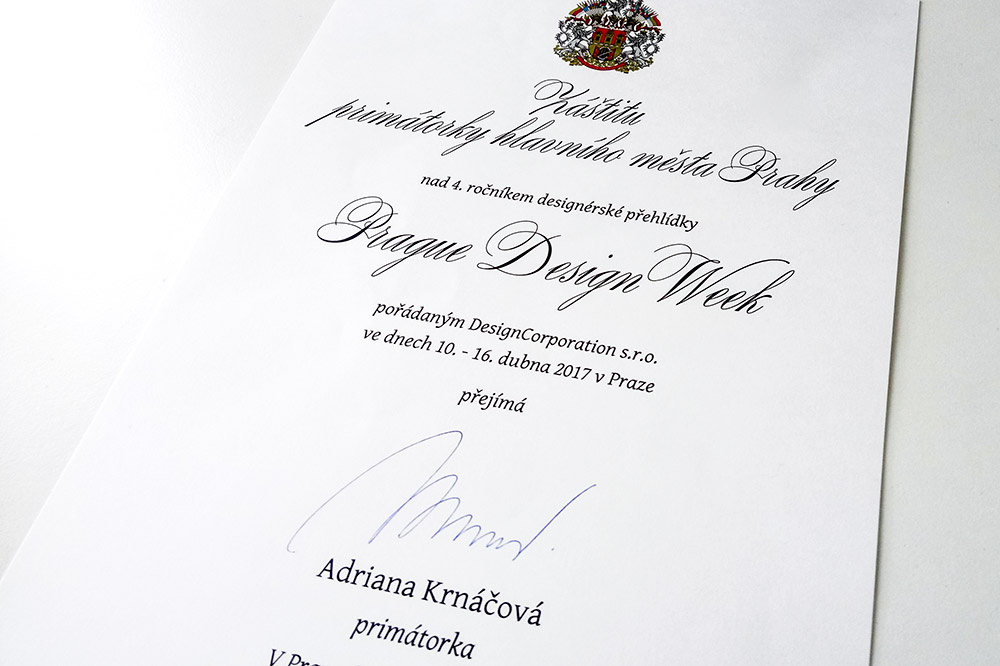 Záštitu
primátorky hlavního města Prahy
nad 4. ročníkem designérské přehlídky
Prague Design Week
pořádaným DesignCorporation s.r.o.
ve dnech 10. - 16. dubna 2017 v Praze
přejímá
Adriana Krnáčová
primátorka
V